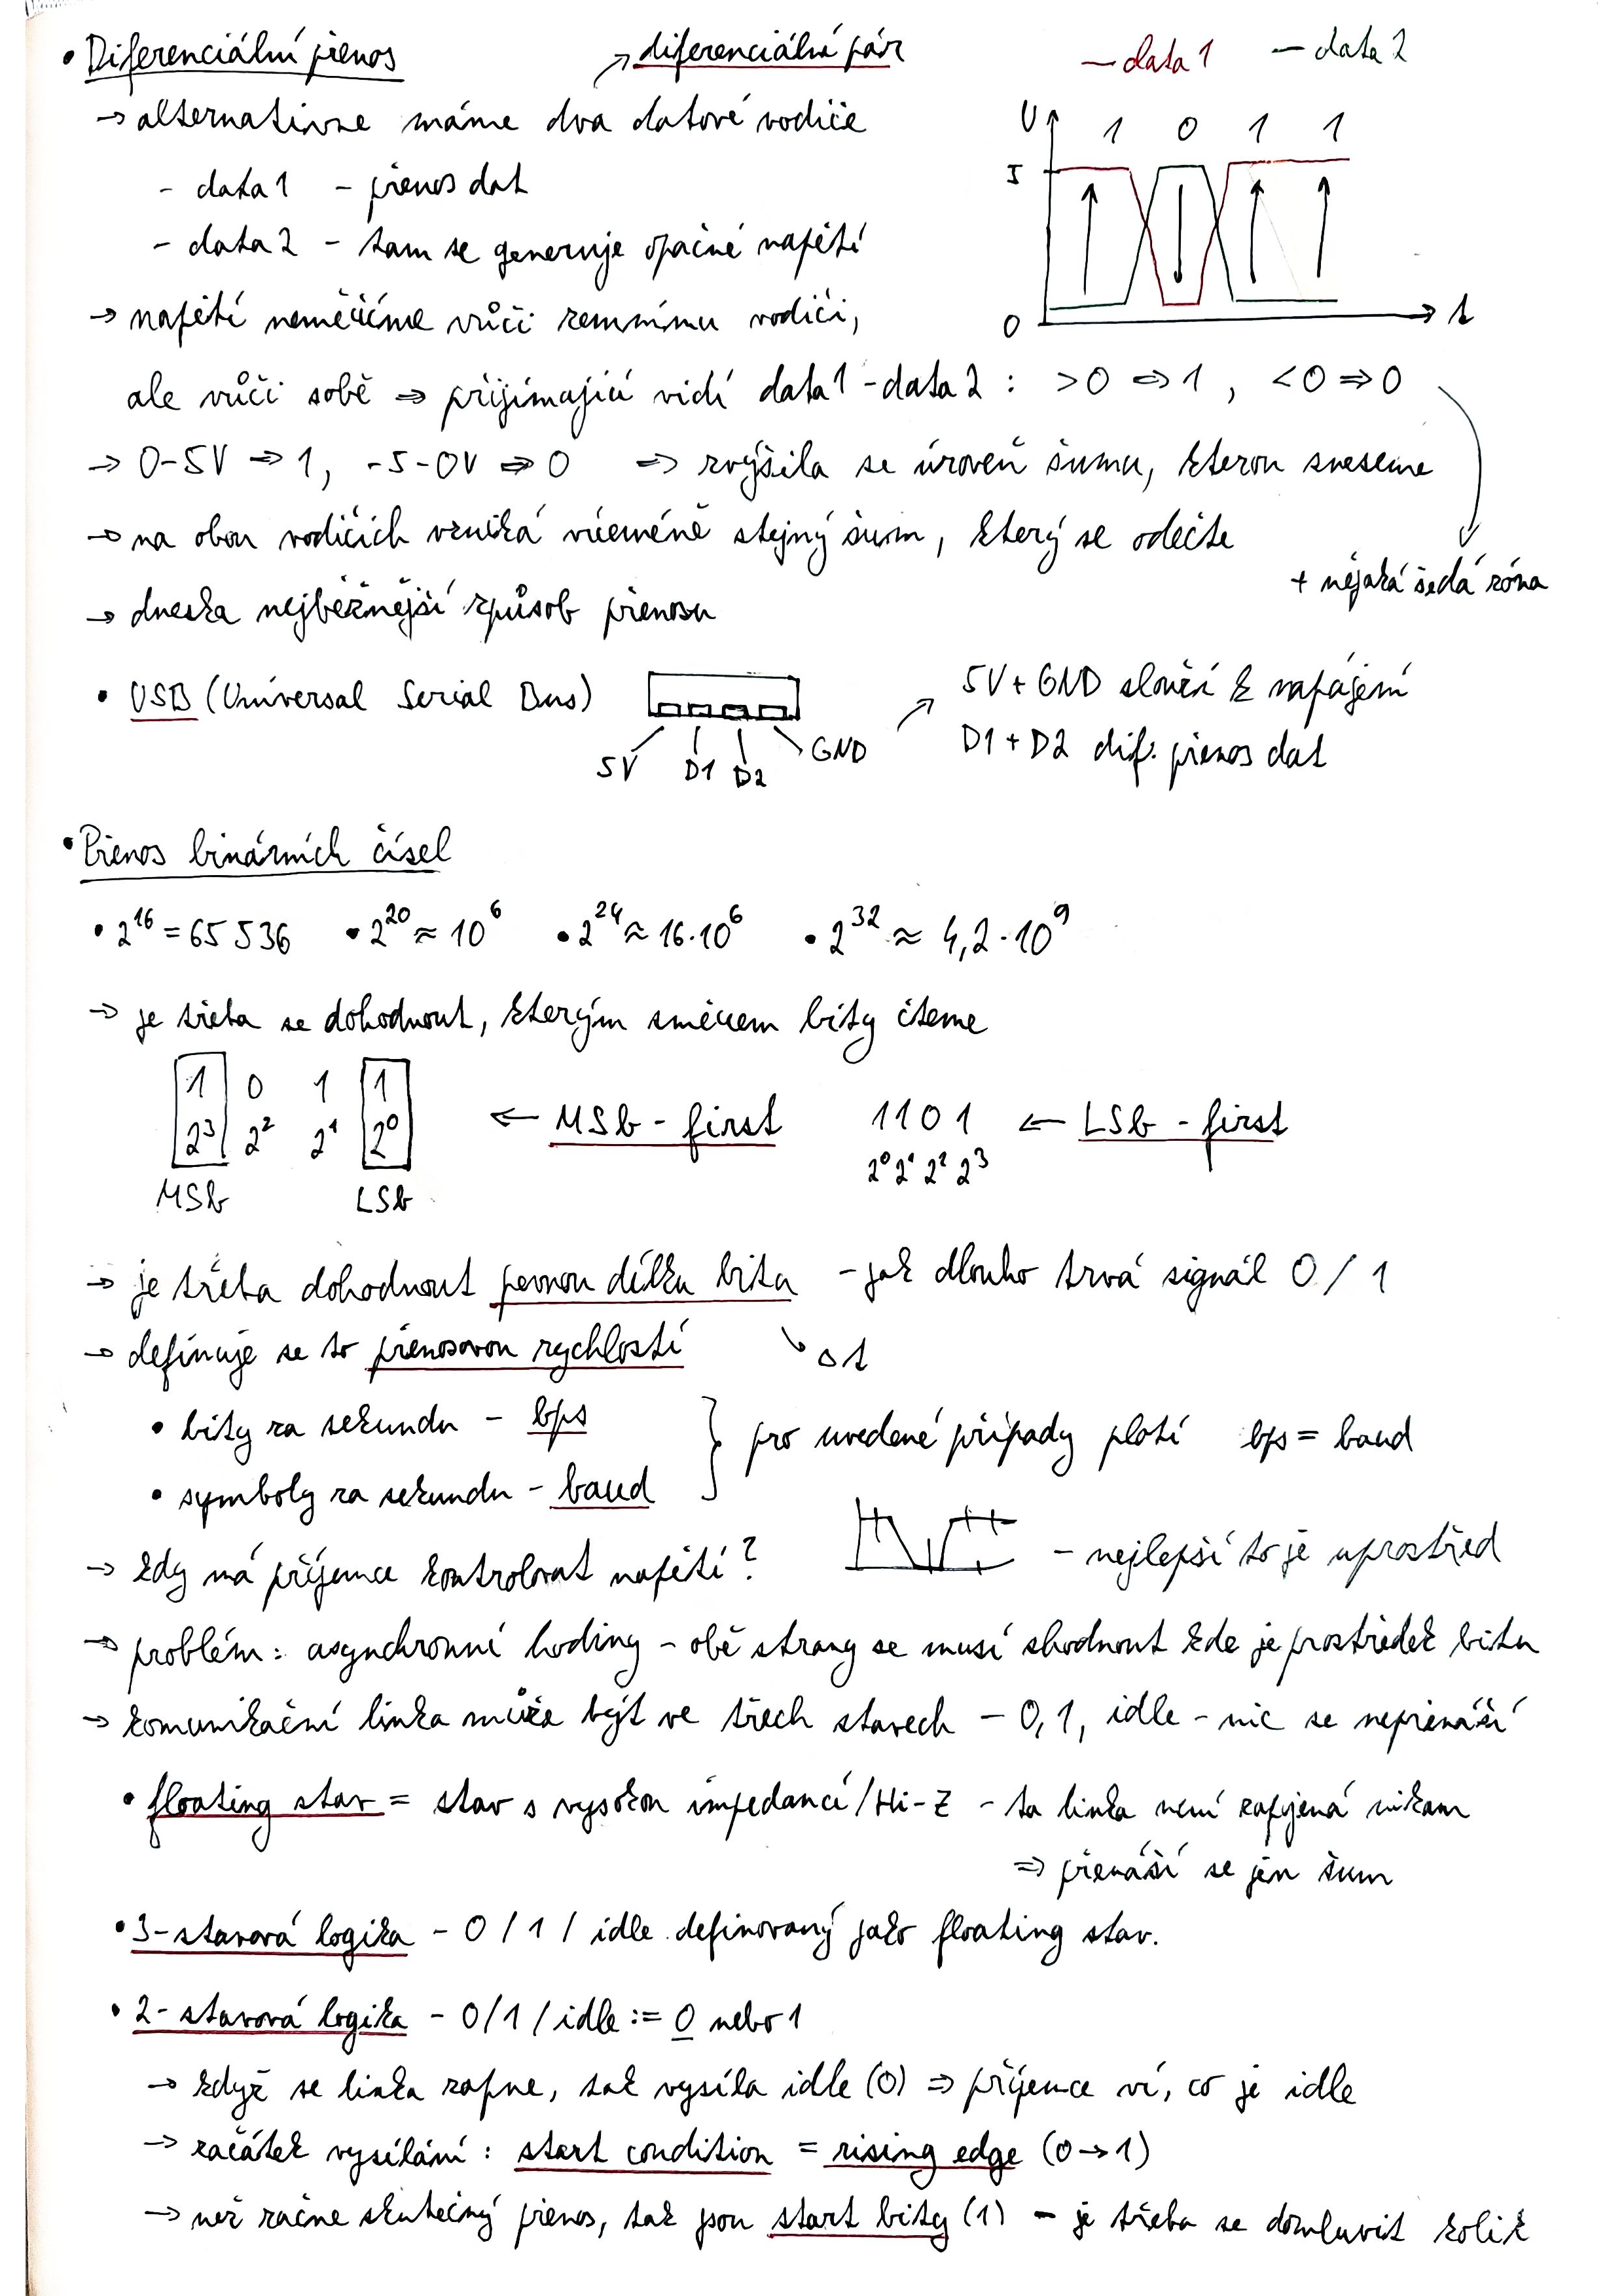 • Diferenciální přenos ↗ diferenciální pár — data 1 — data 2
→ alternativne máme dva datové vodiče
- data 1 - přenos dat
- data 2 - tam se generuje opačné napětí
U 1 0 1 1
5
0 t
→ napětí neměříme vůči zemnímu vodiči,
ale vůči sobě ⇒ přijímající vidí data 1 - data 2 : >0 ⇒ 1 , <0 ⇒ 0
→ 0-5V ⇒ 1, -5-0V ⇒ 0 ⇒ zvýšila se úroveň šumu, kterou sneseme
→ na obou vodičích vzniká víceméně stejný šum, který se odečte
+ nějaká šedá zóna
→ dneska nejběžnější způsob přenosu
• USB (Universal Serial Bus)
5V D1 D2 GND
↗ 5V + GND slouží k napájení
D1 + D2 dif. přenos dat
• Přenos binárních čísel
• 2^16 = 65 536 • 2^20 ≈ 10^6 • 2^24 ≈ 16·10^6 • 2^32 ≈ 4,2·10^9
→ je třeba se dohodnout, kterým směrem bity čteme
1 0 1 1
2^3 2^2 2^1 2^0
MSb LSb
← MSb - first 1101 ← LSb - first
2^0 2^1 2^2 2^3
→ je třeba dohodnout pevnou délku bitu - jak dlouho trvá signál 0 / 1
→ definuje se to přenosovou rychlostí ↘ Δt
• bity za sekundu - bps
• symboly za sekundu - baud
} pro uvedené případy platí bps = baud
→ kdy má příjemce kontrolovat napětí? - nejlepší to je uprostřed
→ problém: asynchronní hodiny - obě strany se musí shodnout kde je prostředek bitu
→ komunikační linka může být ve třech stavech - 0, 1, idle - nic se nepřenáší
• floating stav = stav s vysokou impedancí / Hi-Z - ta linka není zapojená nikam
⇒ přenáší se jen šum
• 3-stavová logika - 0 / 1 / idle definovaný jako floating stav.
• 2-stavová logika - 0/1 / idle := 0 nebo 1
→ když se linka zapne, tak vysíla idle (0) ⇒ příjemce ví, co je idle
→ začátek vysílání : start condition = rising edge (0→1)
→ než začne skutečný přenos, tak jsou start bity (1) - je třeba se domluvit kolik